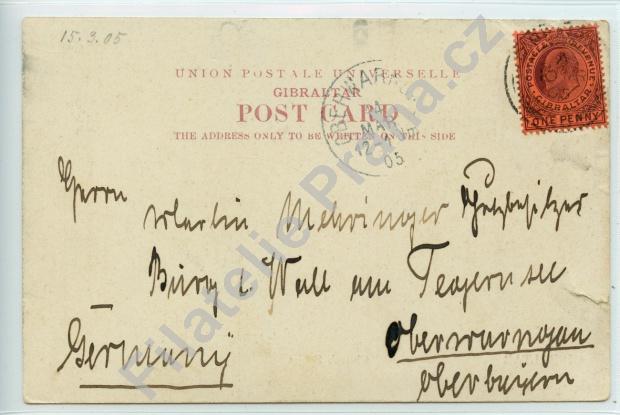 15.3.05
UNION POSTALE UNIVERSELLE
GIBRALTAR
POST CARD
THE ADDRESS ONLY TO BE WRITTEN ON THIS SIDE
POSTAGE & REVENUE
GIBRALTAR
ONE PENNY
OBERWARN
21
MAR
12
05
Herrn Martin Mehringer
Burg b. Wall am Tegernsee
Germany
Oberwarngau
Oberbayern
Filatelie Praha.cz